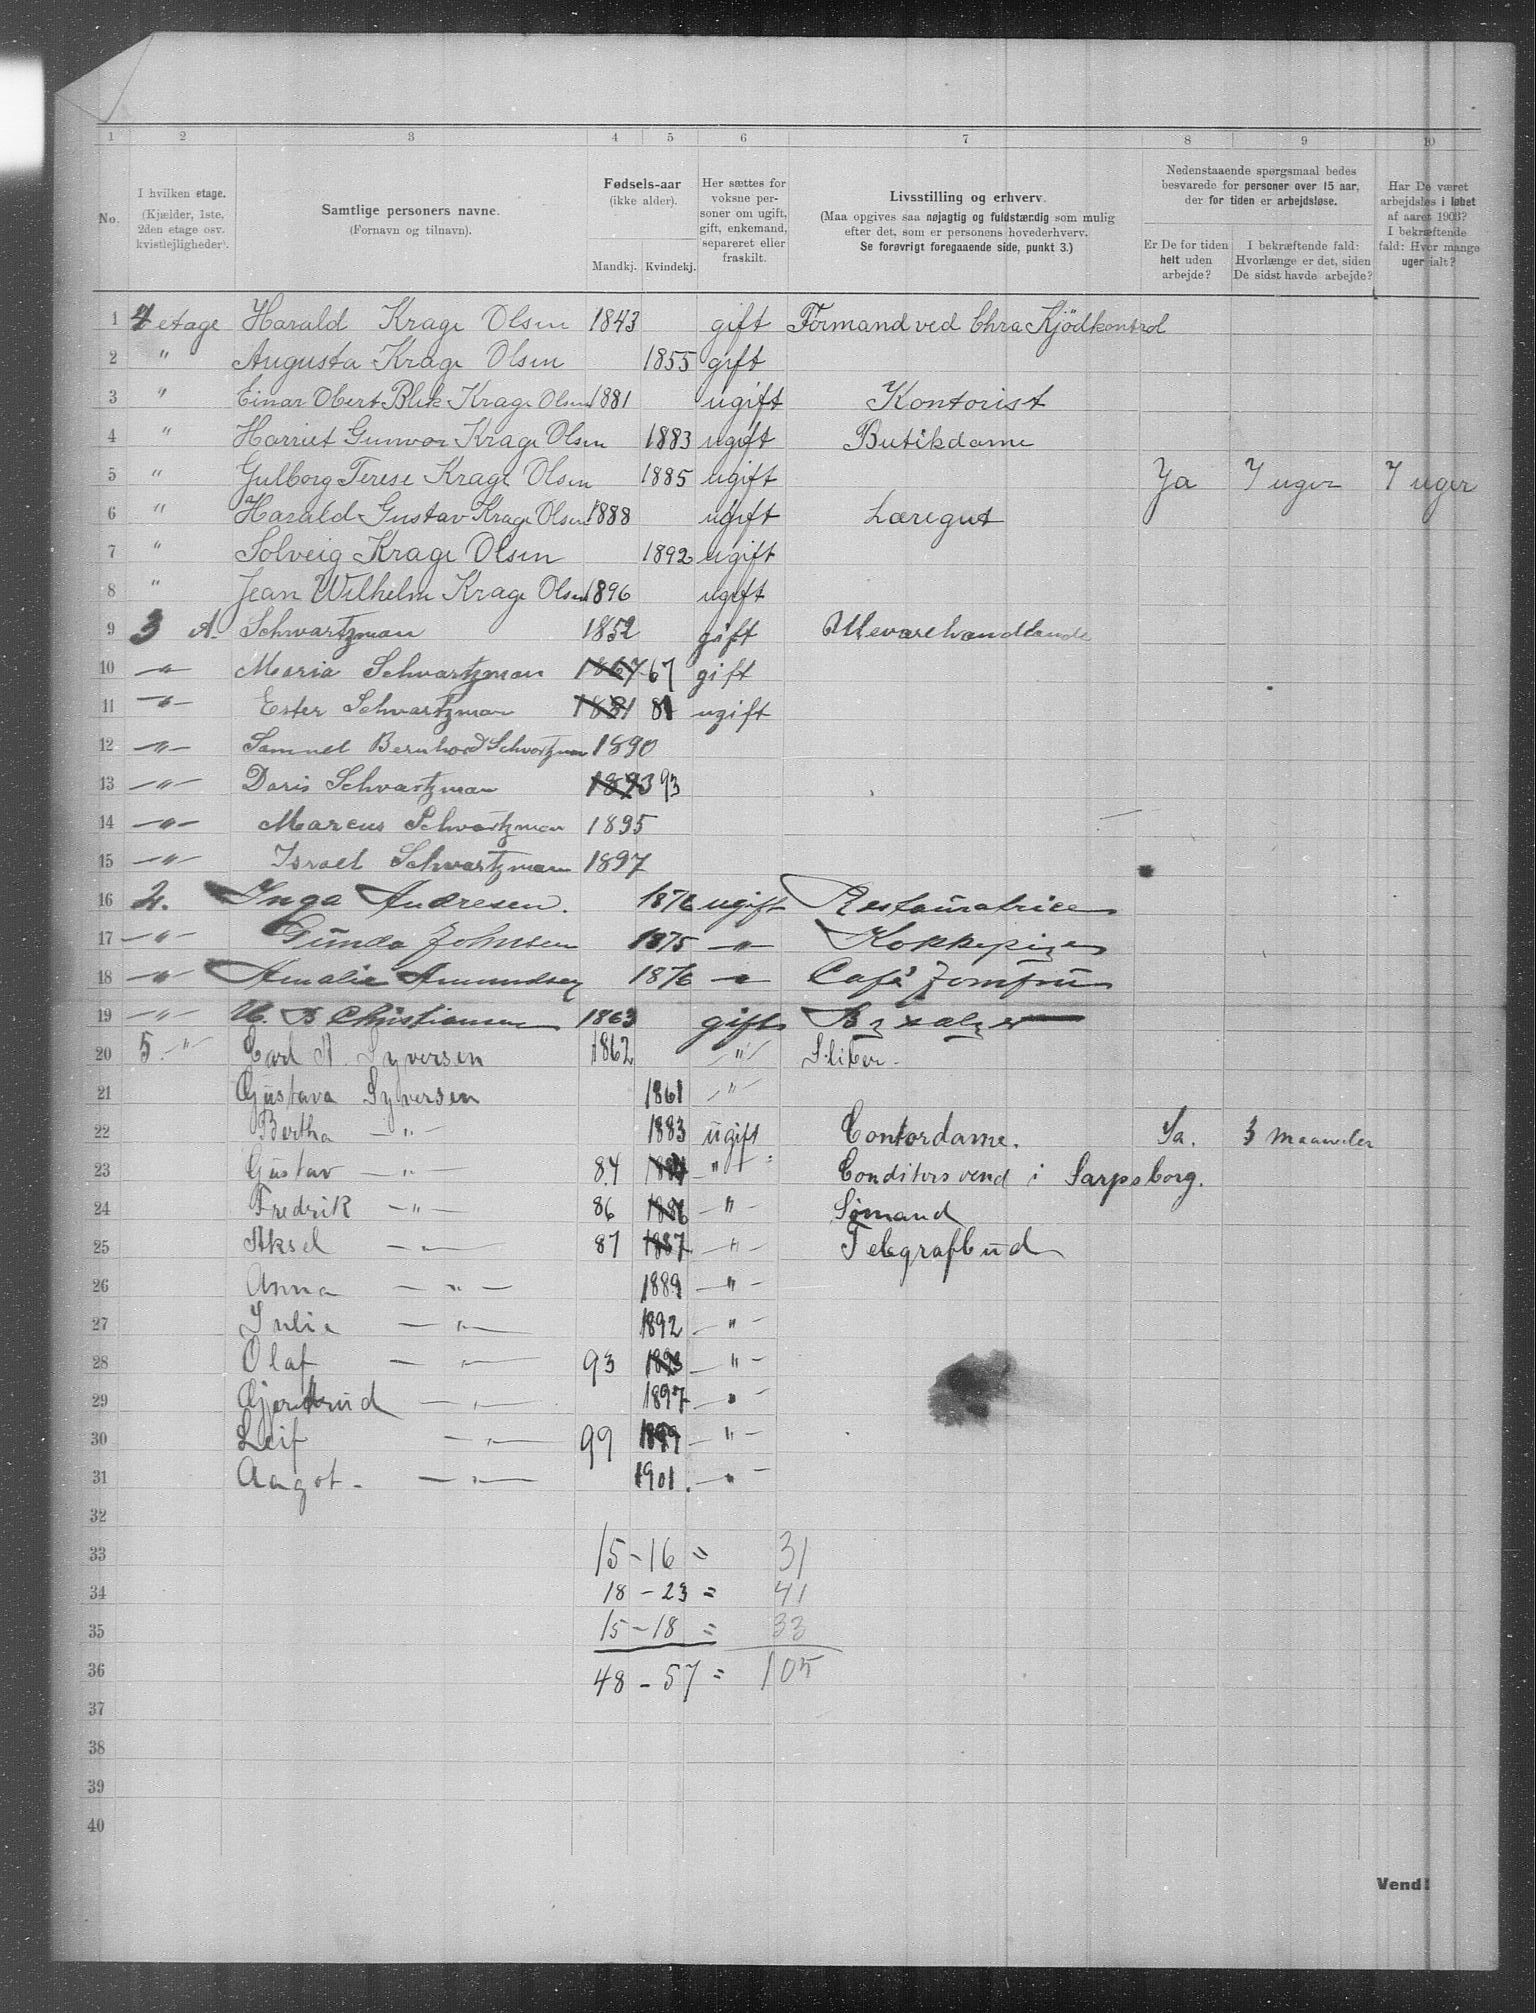 1 2 3 4 5 6 7 8 9 10
No.
I hvilken etage. (Kjælder, 1ste, 2den etage osv. kvistlejligheder).
Samtlige personers navne. (Fornavn og tilnavn).
Fødsels-aar (ikke alder). Mandkj. Kvindekj.
Her sættes for voksne personer om ugift, gift, enkemand, separeret eller fraskilt.
Livsstilling og erhverv. (Maa opgives saa nøjagtig og fuldstændig som mulig efter det, som er personens hovederhverv. Se forøvrigt foregaaende side, punkt 3.)
Nedenstaaende spørgsmaal bedes besvarede for personer over 15 aar, der for tiden er arbejdsløse.
Er De for tiden helt uden arbejde?
I bekræftende fald: Hvorlænge er det, siden De sidst havde arbejde?
Har De været arbejdsløs i løbet af aaret 1903? I bekræftende fald: Hvor mange uger ialt?
1 4 etage Harald Krage Olsen 1843 gift Formand ved Chra Kjödkontrol
2 " Augusta Krage Olsen 1855 gift
3 " Einar Obert Blik Krage Olsen 1881 ugift Kontorist
4 " Harriet Gunvor Krage Olsen 1883 ugift Butikdame
5 " Gulborg Terese Krage Olsen 1885 ugift Ja 7 uger 7 uger
6 " Harald Gustav Krage Olsen 1888 ugift Læregut
7 " Solveig Krage Olsen 1892 ugift
8 " Jean Wilhelm Krage Olsen 1896 ugift
9 3 A. Schwartzman 1852 gift Ullevarehandlende
10 " Maria Schwartzman 1867 67 gift
11 " Ester Schwartzman 1881 81 ugift
12 " Samuel Bernhard Schvartzman 1890
13 " Doris Schvartzman 1893 93
14 " Marcus Schvartzman 1895
15 " Israel Schwartzman 1897
16 2. Inga Andresen. 1876 ugift Restauratrice
17 " Gunda Johnsen 1875 " Kokkepige
18 " Amalie Amundsen 1876 " Café Jomfru
19 " Christiansen 1863 gift
20 5. " Carl A. Syversen 1862 " Sliber.
21 Gustava Syversen 1861 "
22 Bertha " 1883 ugift Contordame. Ja. 3 maaneder
23 Gustav " 84 1884 " Conditorsvend i Sarpsborg.
24 Fredrik " 86 1886 " Sømand
25 Aksel " 87 1887 " Telegrafbud
26 Anna " 1889 "
27 Julie " 1892 "
28 Olaf " 93 1893 "
29 Gjertrud " 1897 "
30 Leif " 99 1899 "
31 Aagot. " 1901. "
32
33 15 - 16 = 31
34 18 - 23 = 41
35 15 - 18 = 33
36 48 - 57 = 105
37
38
39
40
Vend!